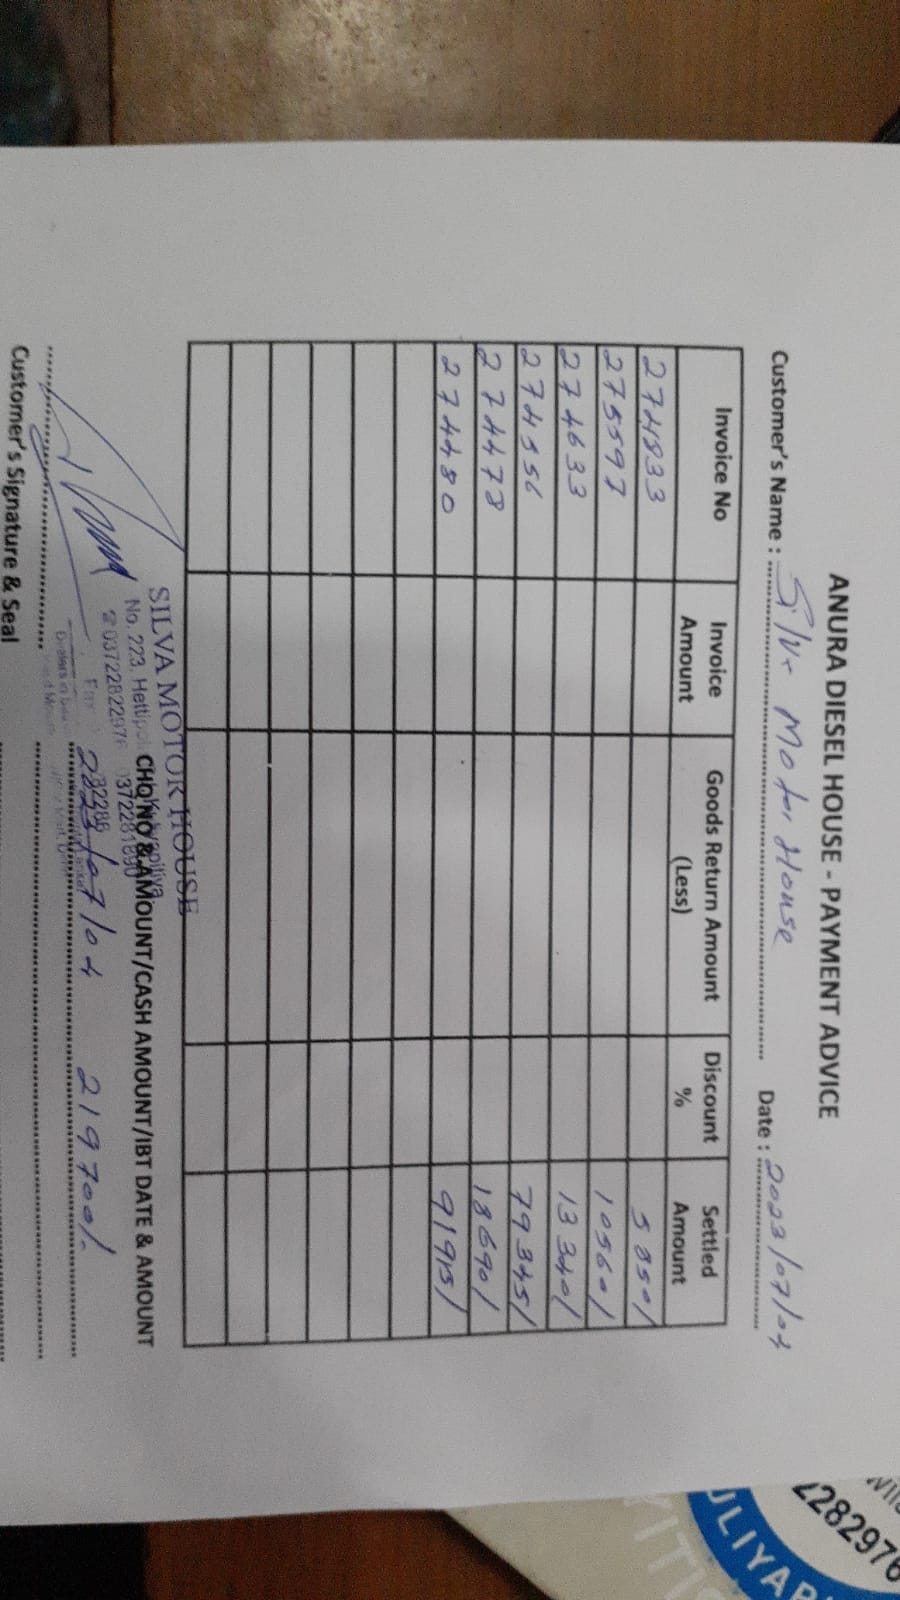 ANURA DIESEL HOUSE - PAYMENT ADVICE
Customer's Name : Silva Motor House Date : 2023/07/04
Invoice No Invoice Amount Goods Return Amount (Less) Discount % Settled Amount
274833 5850/
275597 10560/
274633 13340/
274556 79345/
274478 18690/
274480 91915/
SILVA MOTOR HOUSE
No. 223, Hettipola
☎ 0372282297
0372281890
CHQ NO & AMOUNT/CASH AMOUNT/IBT DATE & AMOUNT
2023/07/04 219700/-
Customer's Signature & Seal
2282976
ULIYAP